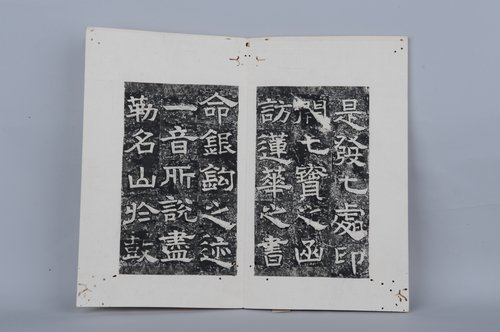 是發七處印
開七寶之函
訪蓮華之書
命銀鈎之迹
一音所說盡
勒名山於鼓